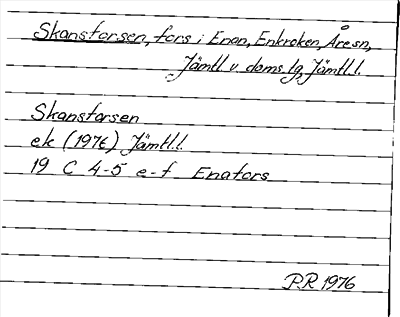 Skansforsen, fors i Enan, Enkroken, Åre sn,
Jämtl. v. doms. lg, Jämtl. l.
Skansforsen
ek (1976) Jämtl. l.
19 C 4-5 e-f Enafors
P.R 1976